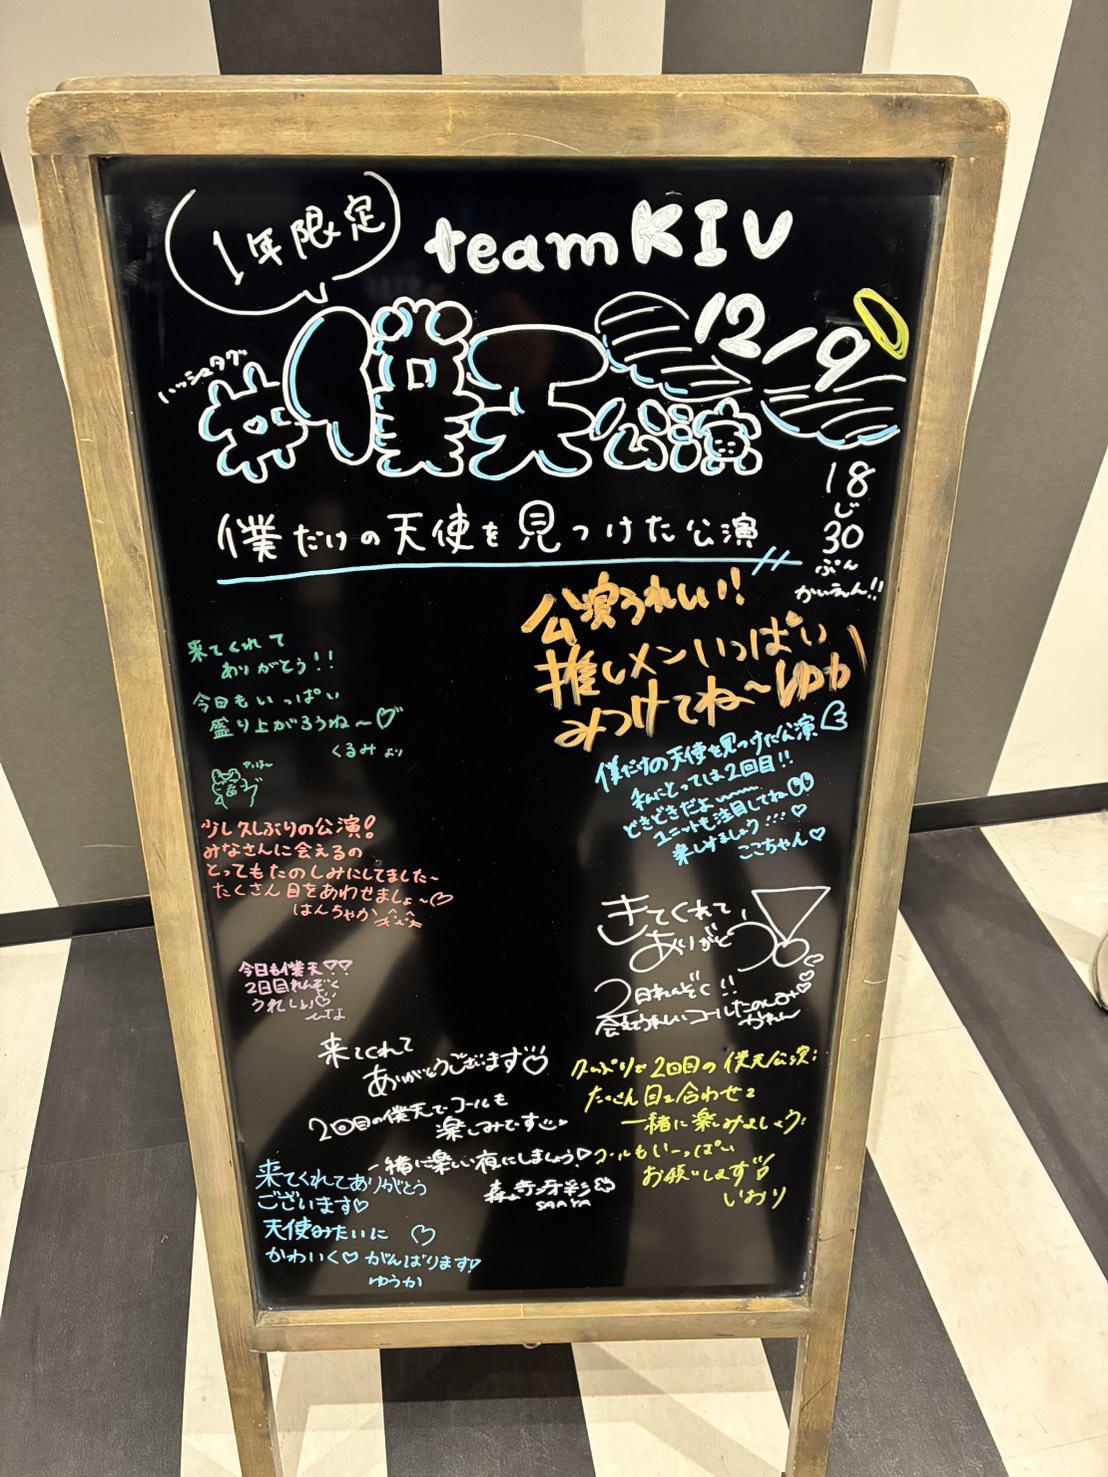 1年限定
team KIV
12/9
ハッシュタグ
#僕天公演
18じ30ぷん
かいえん!!
僕だけの天使を見つけた公演
公演うれしい!
推しメンいっぱい
みつけてね〜ゆか
来てくれて
ありがとう!!
今日もいっぱい
盛り上がろうね〜♡
くるみより
やっほ〜
僕だけの天使を見つけた公演
私にとっては2回目!!
どきどきだよ
ユニットも注目してね
楽しみましょう
ここちゃん♡
少し久しぶりの公演!
みなさんに会えるの
とってもたのしみにしてました~
たくさん目をあわせましょ〜♡
はんちゃか
きてくれて
ありがとう!
2日れんぞく!!
会えてうれしいコールたのんだ
かれん
今日も僕天♡♡
2日目れんぞく
うれしい♡
来てくれて
ありがとうございます♡
2回目の僕天でコールも
楽しみです
一緒に楽しい夜にしましょう♡
森
冴彩
SAAYA
久しぶりで2回目の僕天公演!
たくさん目を合わせて
一緒に楽しみましょう!
コールもいーっぱい
お願いします
いおり
来てくれてありがとう
ございます♡
天使みたいに♡
かわいく♡がんばります♡
ゆうか